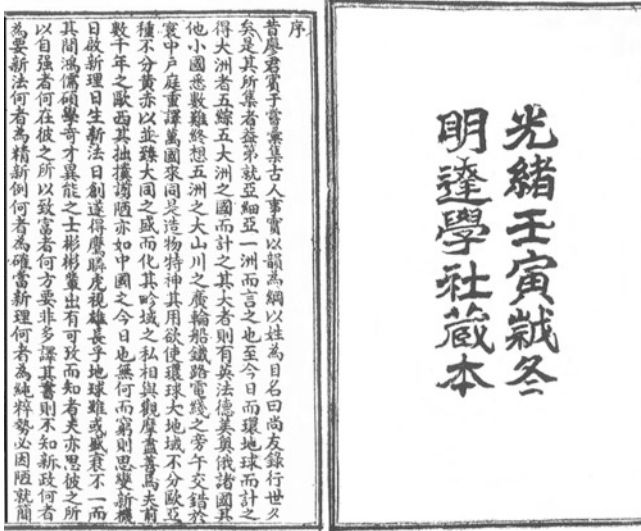 光緒壬寅歲冬
明達學社藏本
序
昔廖君賓于嘗彙集古人事實以韻為綱以姓為目名曰尚友錄行世久
矣是其所集者益第就亞細亞一洲而言之也至今日而環地球而計之
得大洲者五綜五大洲之國而計之其大者則有英法德美奧俄諸國其
他小國悉數難終想五洲之大山川之廣輪船鐵路電綫之旁午交錯於
寰中戶庭重譯萬國來同是造物特神其用欲使環球大地域不分歐亞
種不分黃赤以並臻大同之盛而化其畛域之私相與觀摩盡善焉夫前
數千年之歐西其拙擴謭陋亦如中國之今日也無何而窮則思變新機
日啟新理日生新法日創遂得鷹瞵虎視雄長乎地球雖或盛衰不一而
其間鴻儒碩學奇才異能之士彬彬輩出有可攷而知者夫亦思彼之所
以自强者何在彼之所以致富者何方要非多譯其書則不知新政何者
為要新法何者為精新例何者為確當新理何者為純粹勢必因陋就簡